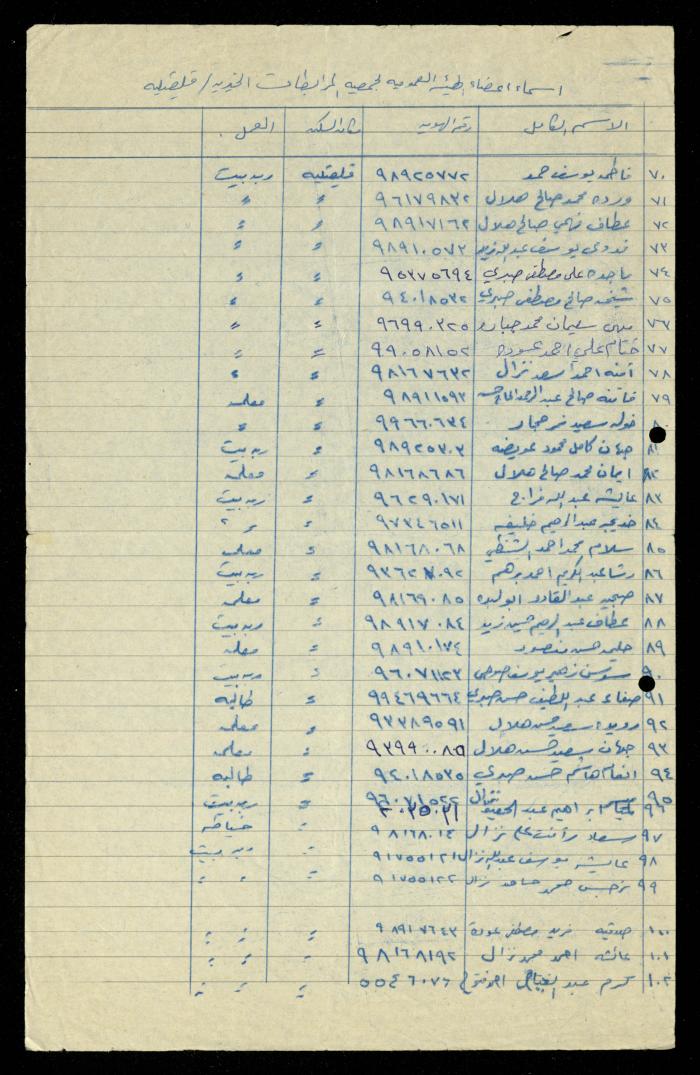 اسماء اعضاء الهيئة العموميه لجمعيه المرابطات الخيريه / قلقيليه
الاسم الكامل رقم الهويه مكان السكن العمل
٧٠ فاطمه يوسف حمد ٩٨٩٢٥٧٧٢ قلقيليه ربه بيت
٧١ ورده محمد صالح هلال ٩٦١٧٩٨٣٢ = =
٧٢ عطاف فهمي صالح هلال ٩٨٩١٧١٦٢ = =
٧٣ فدوى يوسف عبد الله زيد ٩٨٩١٠٥٧٣ = =
٧٤ ماجده على مصطفى صبري ٩٥٣٧٥٦٩٤ = =
٧٥ صالح مصطفى صبري ٩٤٠١٨٥٣٢ = =
٧٦ سليمان محمد جباره ٩٦٩٩٠٣٢٥ = =
٧٧ ختام علي احمد عوده ٩٩٠٥٨١٥٢ = =
٧٨ آمنه احمد اسعد نزال ٩٨١٦٧٦٣٢ = =
٧٩ فاتنه صالح عبد الرحمن ٩٨٩١١٥٩٣ = معلمه
٨٠ خوله سعيد نمر حجاز ٩٩٦٦٠٦٣٤ = =
٨١ جهان كامل محمود عويضه ٩٨٩٢٥٣٠٣ = ربه بيت
٨٢ ايمان محمد صالح هلال ٩٨١٦٨٦٨٦ = معلمه
٨٣ عائشه عبد الله فراج ٩٦٢٩٠١٧١ = ربه بيت
٨٤ خديجه عبد الرحيم خليفه ٩٧٣٤٦٥١١ = =
٨٥ سلام محمد احمد الشنطي ٩٨١٦٨٠٦٨ = معلمه
٨٦ رشا عبد الكريم احمد برهم ٩٣٦٢٧٠٩٢ = ربه بيت
٨٧ صبحيه عبد القادر ابو لبده ٩٨١٦٩٠٨٥ = معلمه
٨٨ عطاف عبد الرحيم حسين زيد ٩٨٩١٧٠٨٤ = ربه بيت
٨٩ حليمه حسن منصور ٩٨٩١٠١٧٤ = معلمه
٩٠ سوسن زهير يوسف ٩٦٠٧١١٢٣ = ربه بيت
٩١ صفاء عبد اللطيف حسن صبري ٩٩٤٦٩٦٦٤ = طالبه
٩٢ رويدا سعيد حسن هلال ٩٣٣٨٩٥٩١ = معلمه
٩٣ جهان سعيد حسن هلال ٩٣٩٩٠٠٨٥ = معلمه
٩٤ انعام هاشم حسن صبري ٩٤٠١٨٥٣٥ = طالبه
٩٥ نزال ٩٦٠٧١٥٤٢ ربه بيت
٩٦ ابراهيم عبد الحفيظ ٢٠٣٥٠٣١ =
٩٧ سعاد رأفت علي نزال ٩٨١٦٨٠١٤ = خياطه
٩٨ عايشه يوسف عبد الله نزال ٩١٧٥٥١٢١ = ربه بيت
٩٩ نرجس محمد حامد نزال ٩١٧٥٥١٢٢ = =
١٠٠ صدقيه فريد مصطفى عودة ٩٨٩١٧٦٤٣ = =
١٠١ عائشه احمد محمد نزال ٩٨١٦٨١٩٢ = =
١٠٢ كرم عبد الفتاح ٥٥٤٦٠٧٦ = =